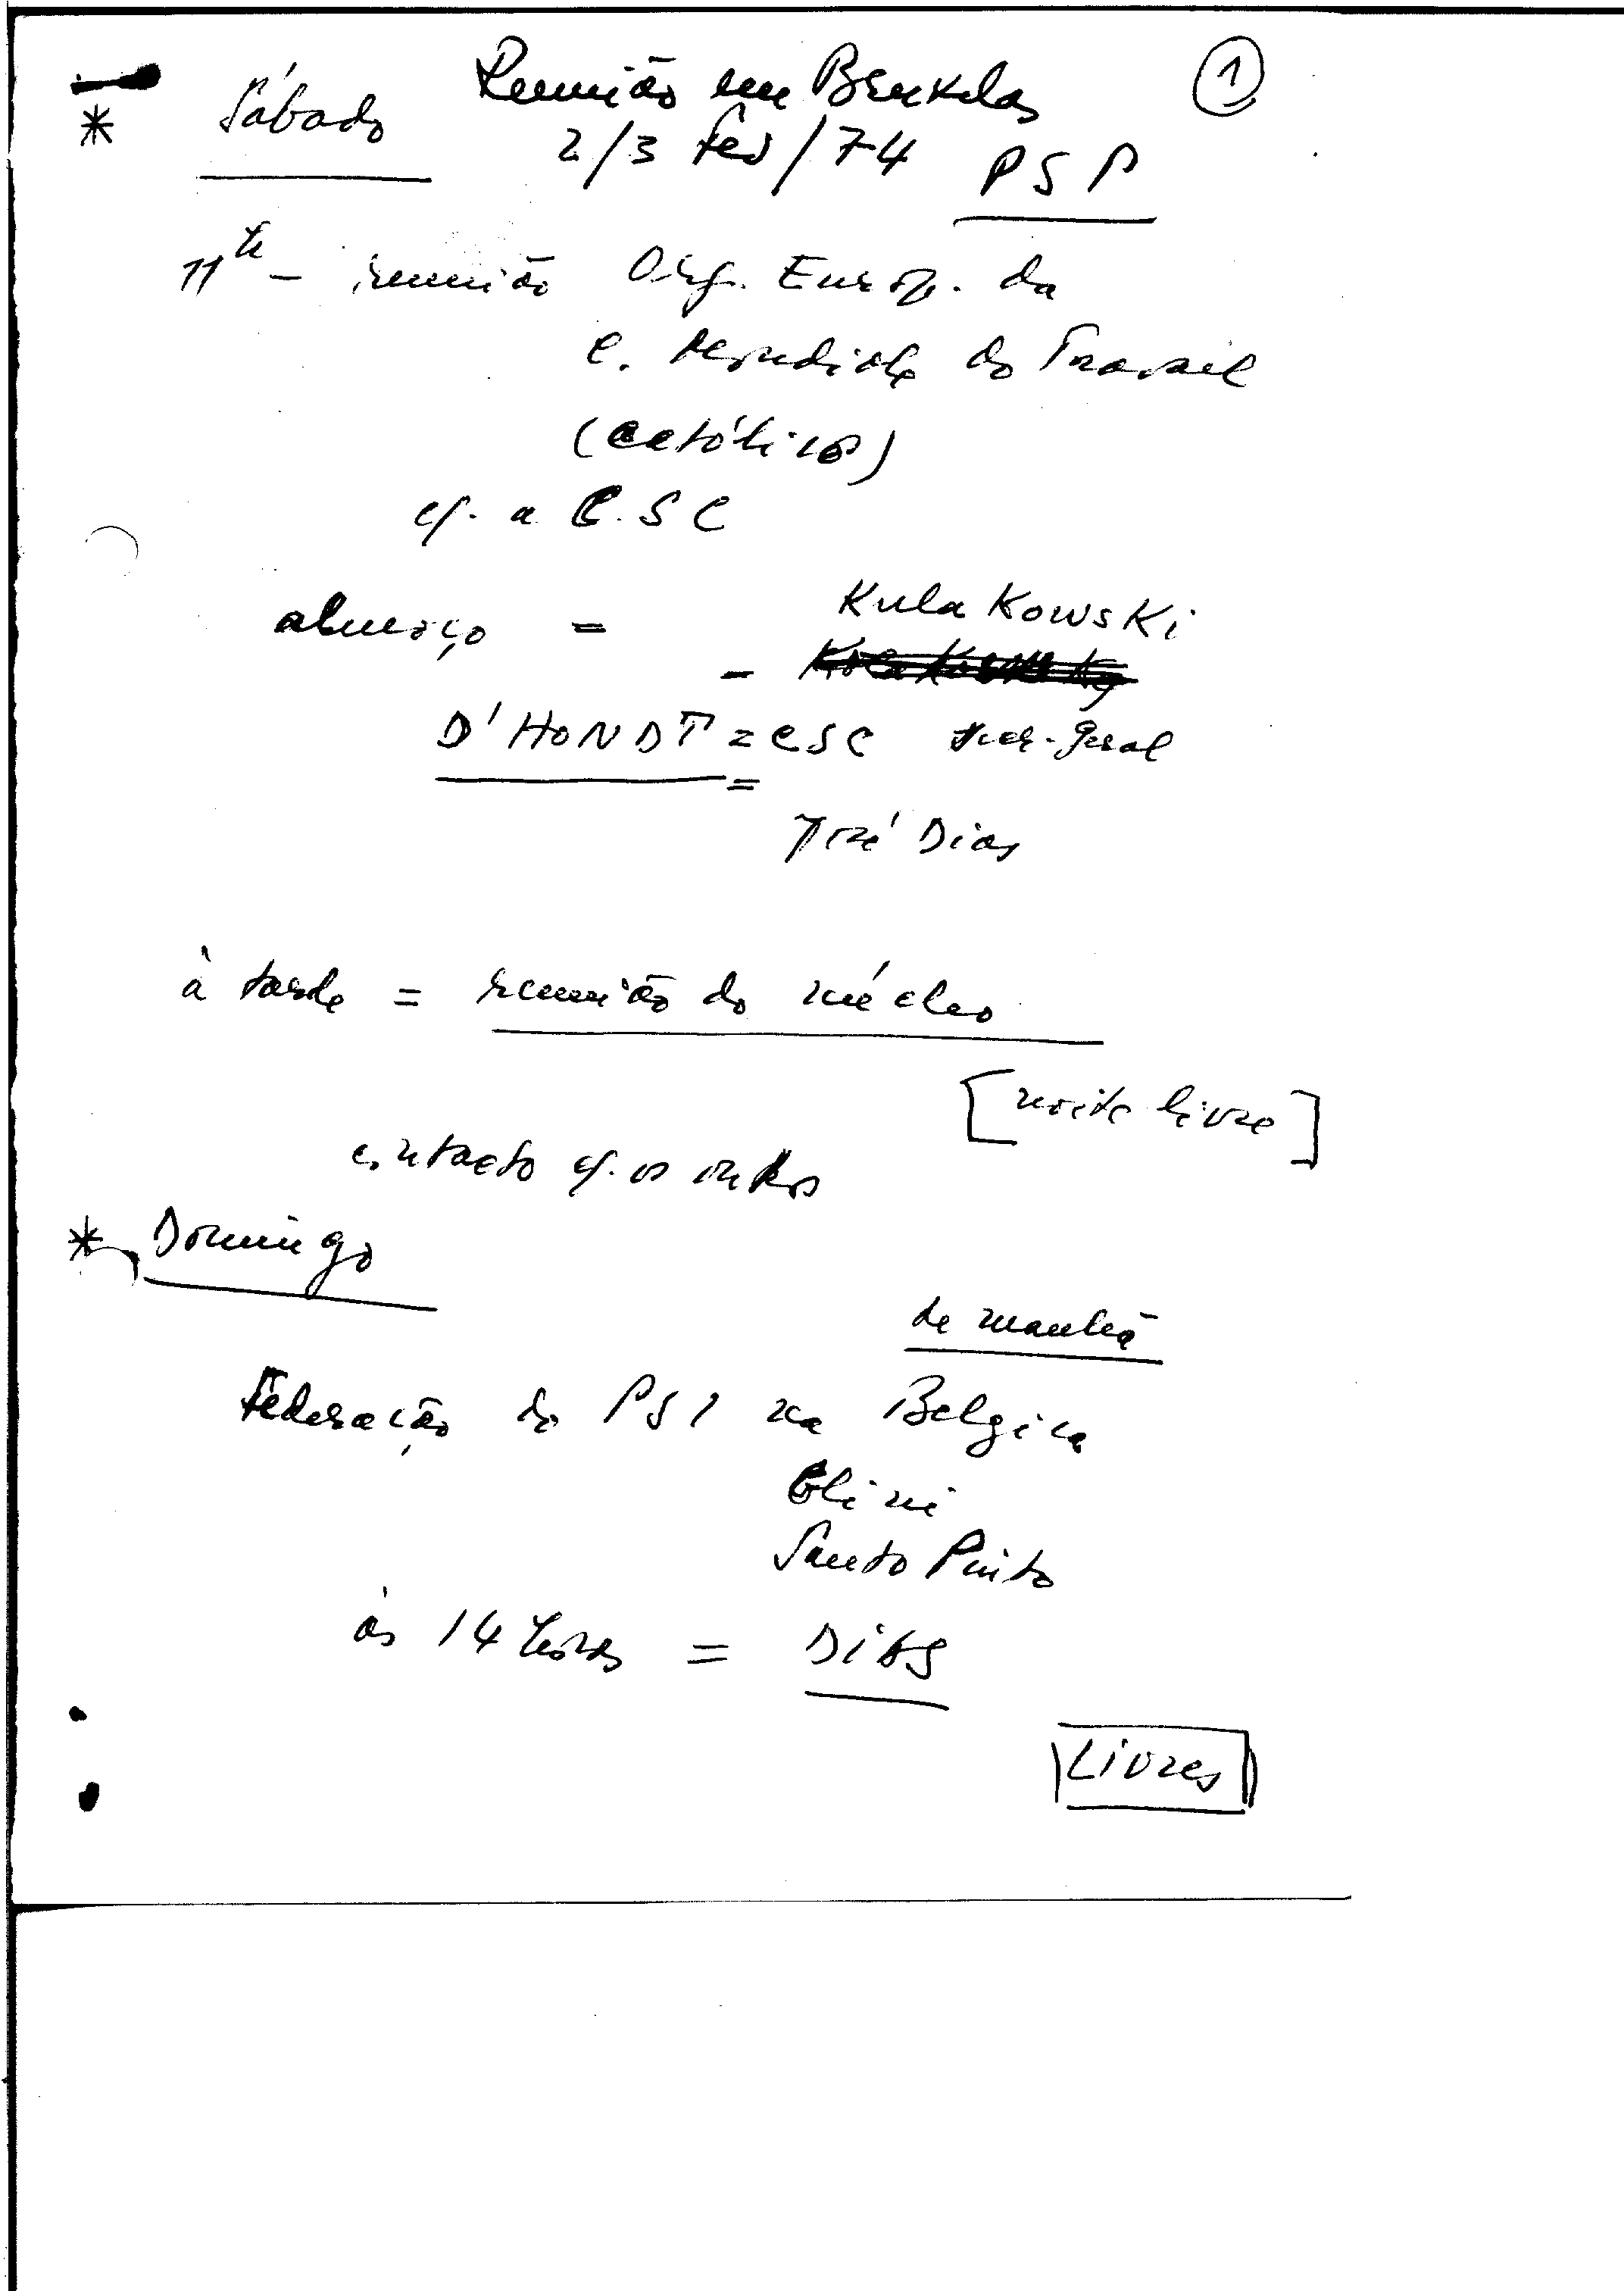 Reunião em Bruxelas
①
* Sábado
2/3 Fev/74 PSP
11h - reunião Org. Europ. da
C. Mondiale do Travail
(católica)
c/. a C.SC
almoço = Kulakowski
-
D'HONDT = CSC secr-geral
=
José Dias
à tarde = reunião do núcleo
[noite livre]
contacto c/. os outros
* Domingo
de manhã
Federação do PSI na Belgica
Olini
Santo Pinto
às 14 horas = DIAS
Livres